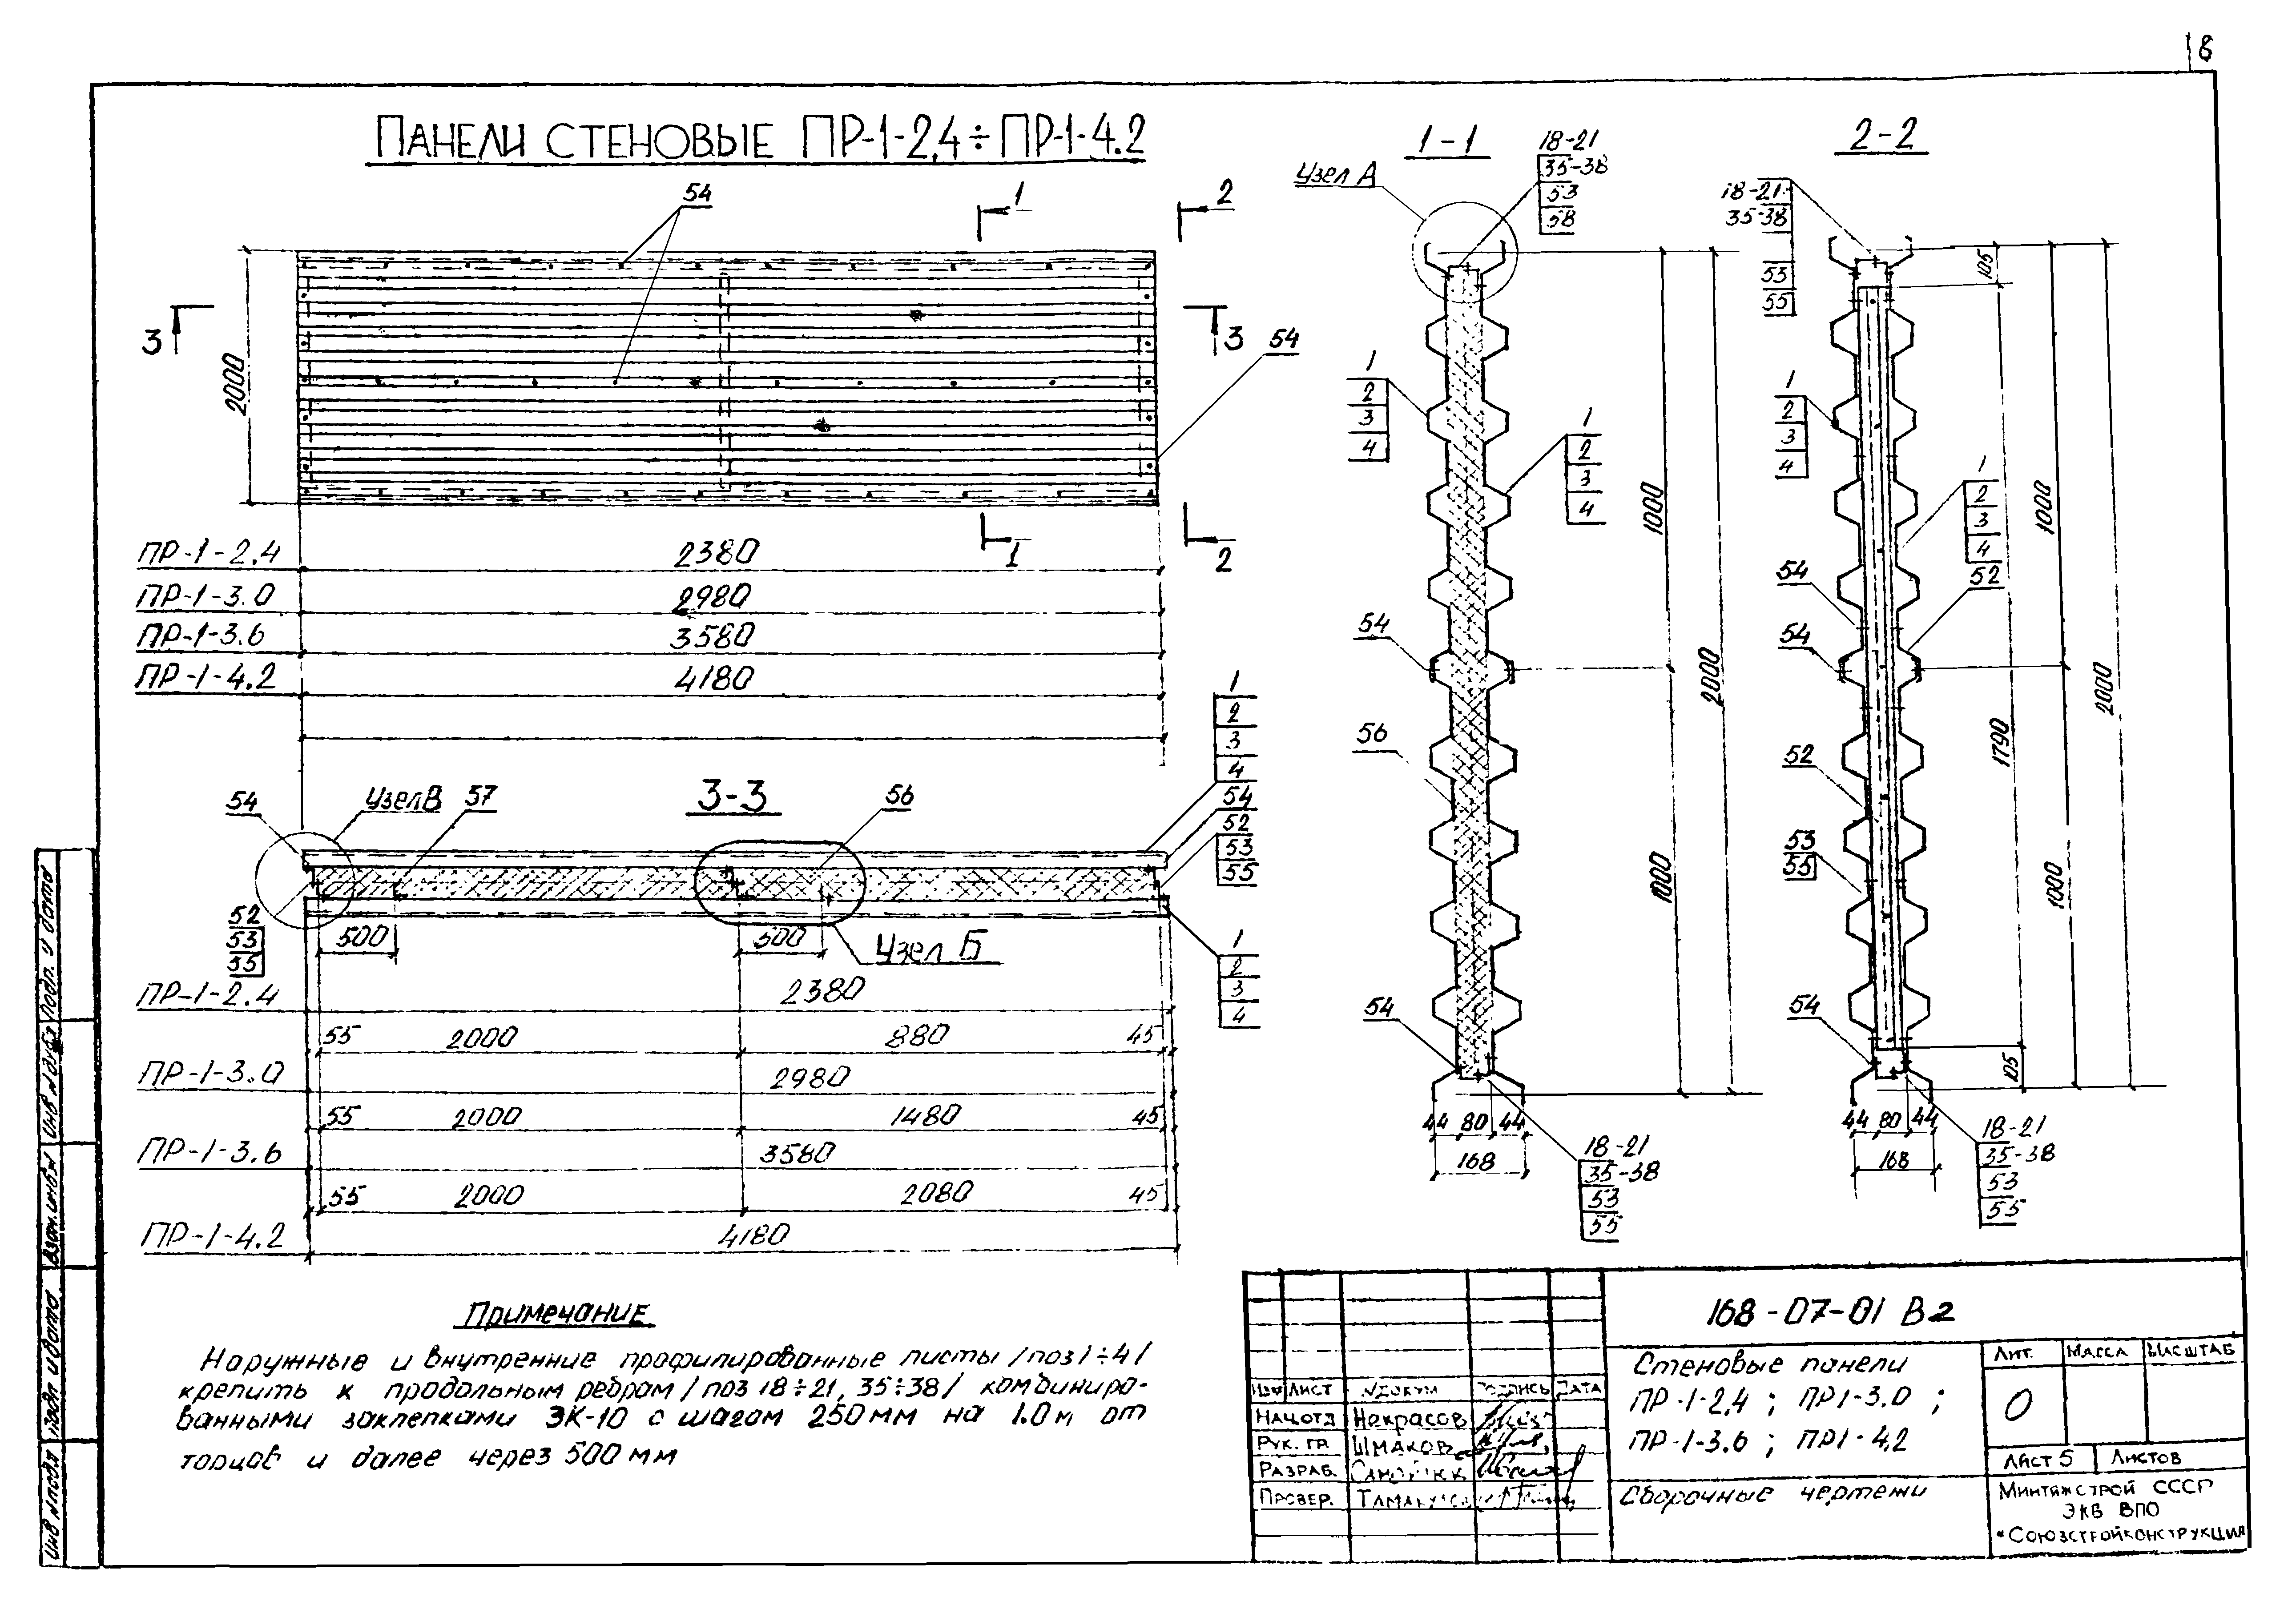 8
ПАНЕЛИ СТЕНОВЫЕ ПР-1-2,4÷ПР-1-4.2
54
1
2
3
3
2000
54
1
2
ПР-1-2.4
2380
ПР-1-3.0
2980
ПР-1-3.6
3580
ПР-1-4.2
4180
3-3
54
Узел В
57
56
1
2
3
4
54
52
53
55
52
53
55
500
500
Узел Б
1
2
3
4
ПР-1-2.4
2380
55
2000
880
45
ПР-1-3.0
2980
55
2000
1480
45
ПР-1-3.6
3580
55
2000
2080
45
ПР-1-4.2
4180
1-1
Узел А
18-21
35-38
53
58
1
2
3
4
1
2
3
4
54
56
54
1000
2000
1000
44
80
44
168
18-21
35-38
53
55
2-2
18-21
35-38
53
55
105
1
2
3
4
1
2
3
4
52
54
54
52
53
55
54
1000
2000
1790
1000
105
44
80
44
168
18-21
35-38
53
55
Примечание
Наружные и внутренние профилированные листы /поз 1÷4/
крепить к продольным ребрам /поз 18÷21, 35÷38/ комбиниро-
ванными заклепками ЗК-10 с шагом 250 мм на 1.0 м от
торцов и далее через 500 мм
168-07-01 В2
Стеновые панели
ПР-1-2,4 ; ПР1-3.0 ;
ПР-1-3.6 ; ПР1-4.2
Сборочные чертежи
Лит.
Масса
Масштаб
О
Лист 5
Листов
Минтяжстрой СССР
ЭКБ ВПО
"Союзстройконструкция
Изм
Лист
№ докум
Подпись
Дата
Нач.отд
Некрасов
Рук. гр
Шмаков
Разраб.
Провер.
Подп. и дата
Инв № дубл
Взам. инв №
Подп и дата
Инв № подл